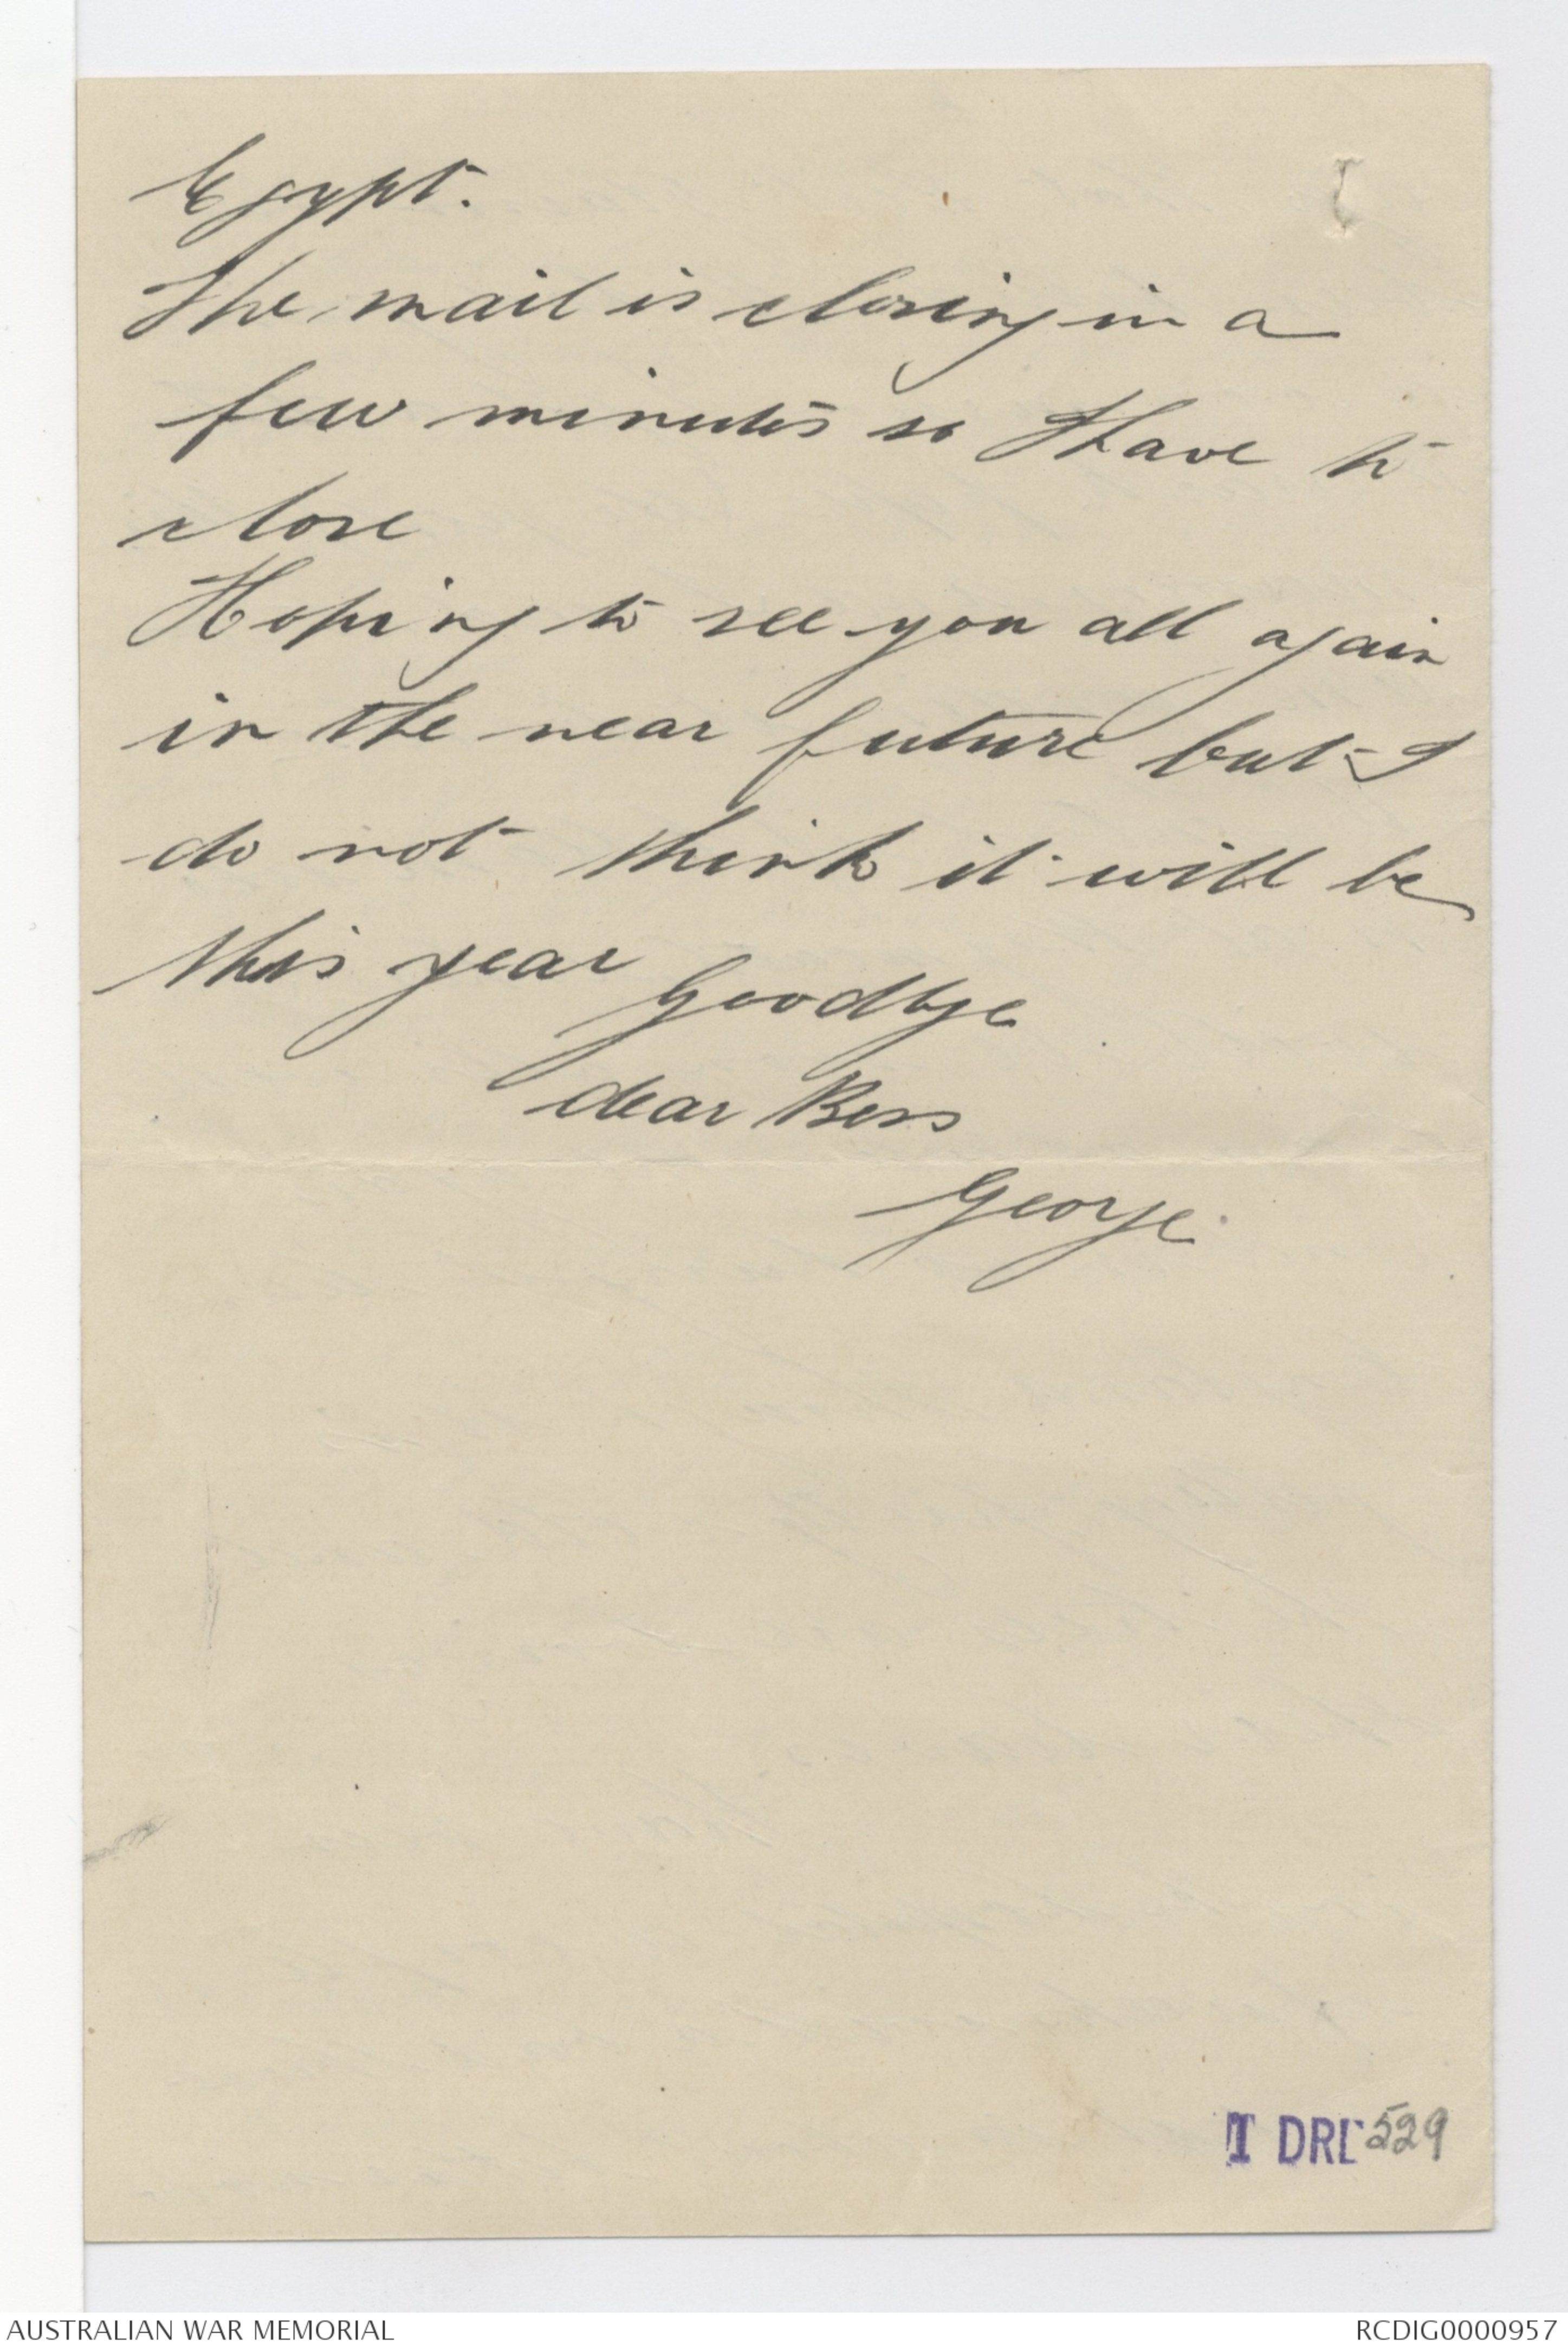 Egypt.
The mail is closing in a
few minutes so I have to
close
Hoping to see you all again
in the near future but I
do not think it will be
this year Goodbye
dear Bess
George.
1 DRL 529
AUSTRALIAN WAR MEMORIAL
RCDIG0000957